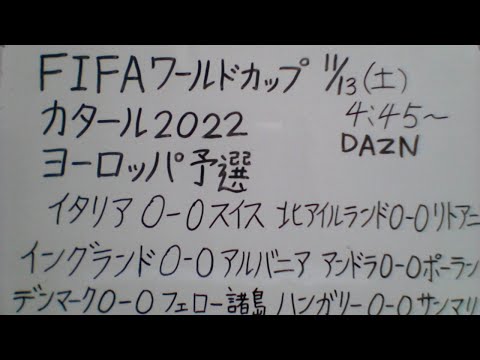 FIFAワールドカップ 11/13(土)
カタール2022 4:45～
ヨーロッパ予選 DAZN
イタリア0-0スイス 北アイルランド0-0リトアニ
イングランド0-0アルバニア アンドラ0-0ポーラン
デンマーク0-0フェロー諸島 ハンガリー0-0サンマリ